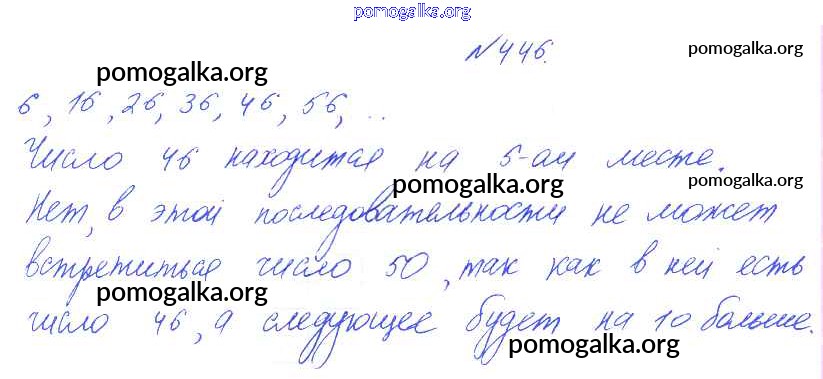 pomogalka.org
№446.
pomogalka.org
pomogalka.org
6, 16, 26, 36, 46, 56, ...
Число 46 находится на 5-ом месте.
pomogalka.org
pomogalka.org
Нет, в этой последовательности не может
встретиться число 50, так как в ней есть
pomogalka.org
число 46, а следующее будет на 10 больше.
pomogalka.org